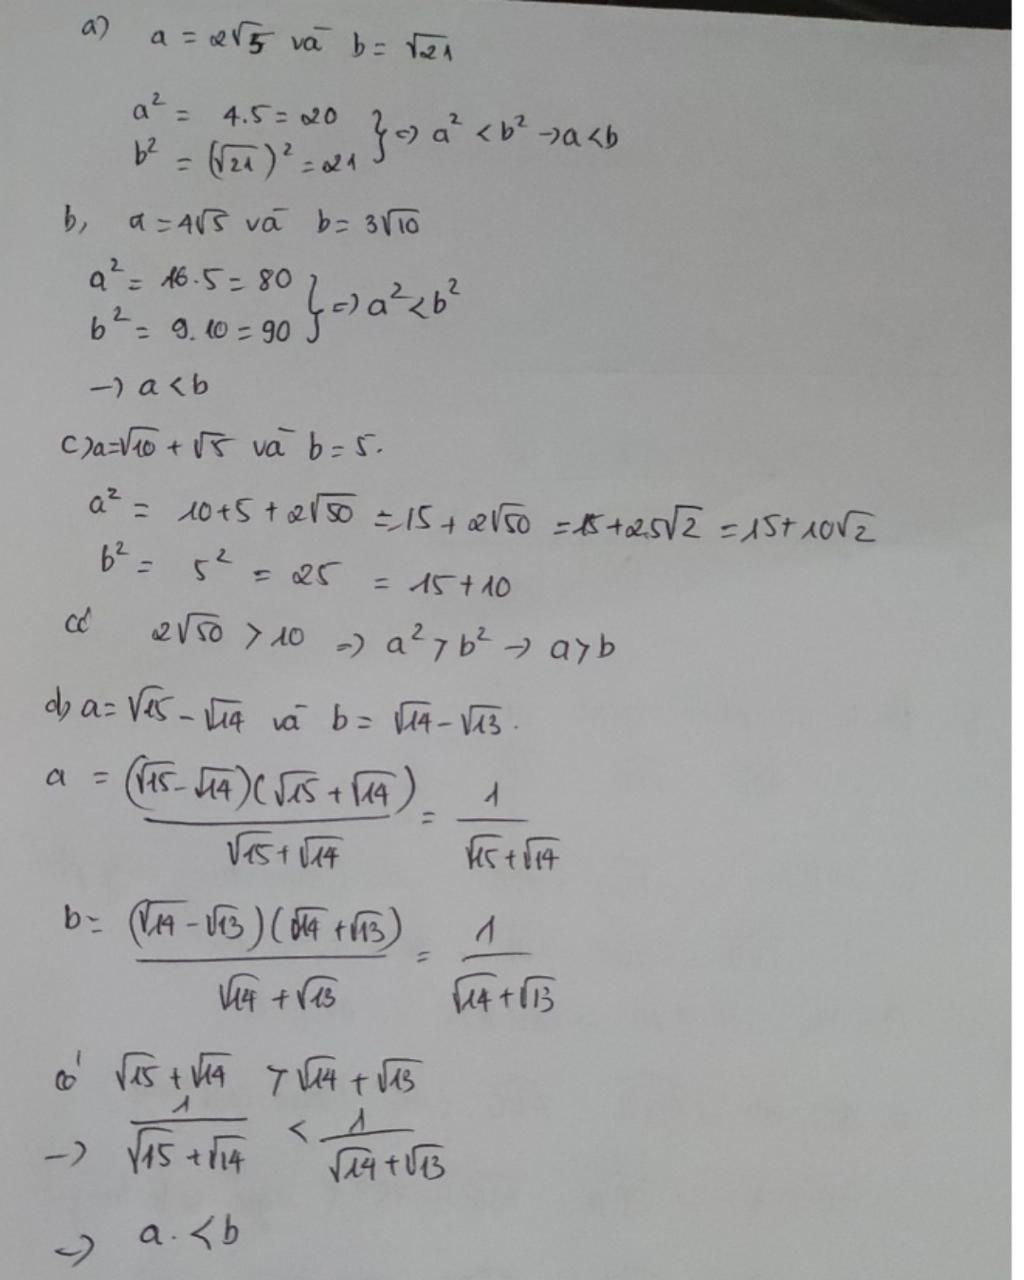 a) a = 2√5 và b = √21
a² = 4.5 = 20
b² = (√21)² = 21 } => a² < b² → a < b
b, a = 4√5 và b = 3√10
a² = 16.5 = 80
b² = 9.10 = 90 } => a² < b²
→ a < b
c) a = √10 + √5 và b = 5.
a² = 10 + 5 + 2√50 = 15 + 2√50 = 15 + 2.5√2 = 15 + 10√2
b² = 5² = 25 = 15 + 10
có 2√50 > 10 => a² > b² → a > b
d) a = √15 - √14 và b = √14 - √13.
a = (√15 - √14)(√15 + √14) / (√15 + √14) = 1 / (√15 + √14)
b = (√14 - √13)(√14 + √13) / (√14 + √13) = 1 / (√14 + √13)
có √15 + √14 > √14 + √13
→ 1 / (√15 + √14) < 1 / (√14 + √13)
→ a. < b